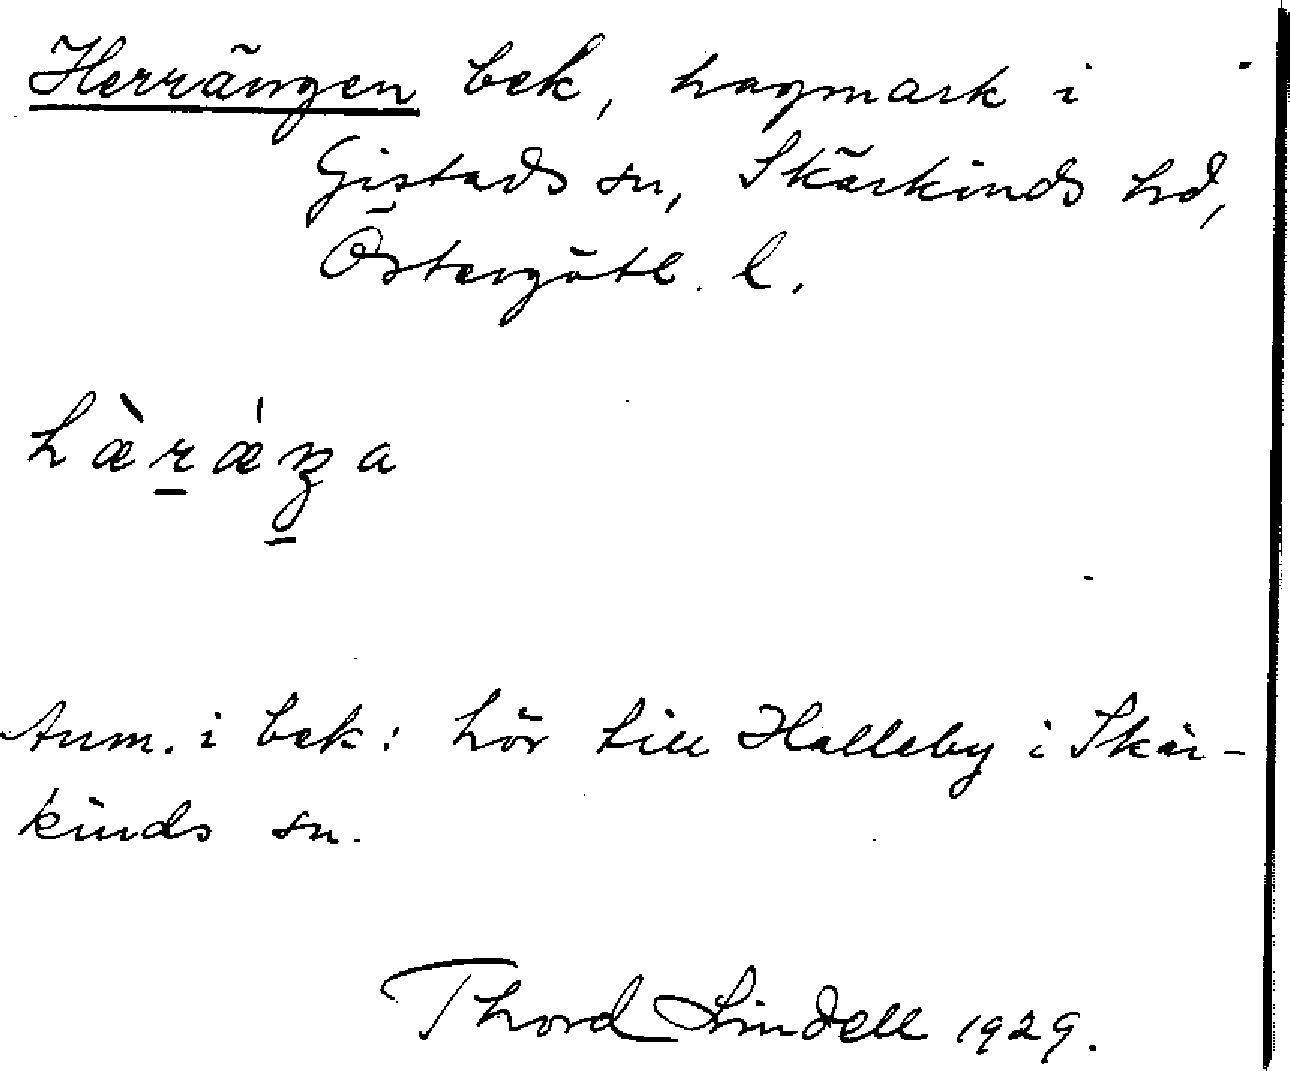 Herrängen bek, hagmark i
Gistads sn, Skärkinds hd,
Östergötl. l.
hæ̀r̠ǽŋ̠a
Anm. i bek: hör till Halleby i Skär-
kinds sn.
Thord Lindell 1929.